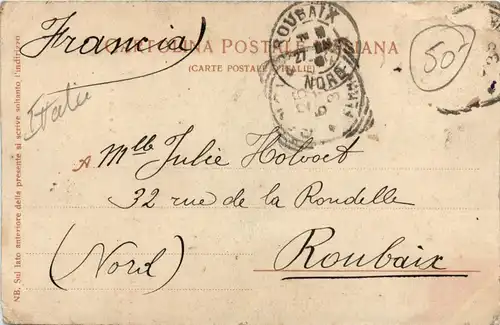 Francia
CARTOLINA POSTALE ITALIANA
(CARTE POSTALE D'ITALIE)
ROUBAIX
NORD
50
Italie
A Mlle Julie Holvoet
32 rue de la Rondelle
(Nord) Roubaix
NB. Sul lato anteriore della presente si scrive soltanto l'indirizzo